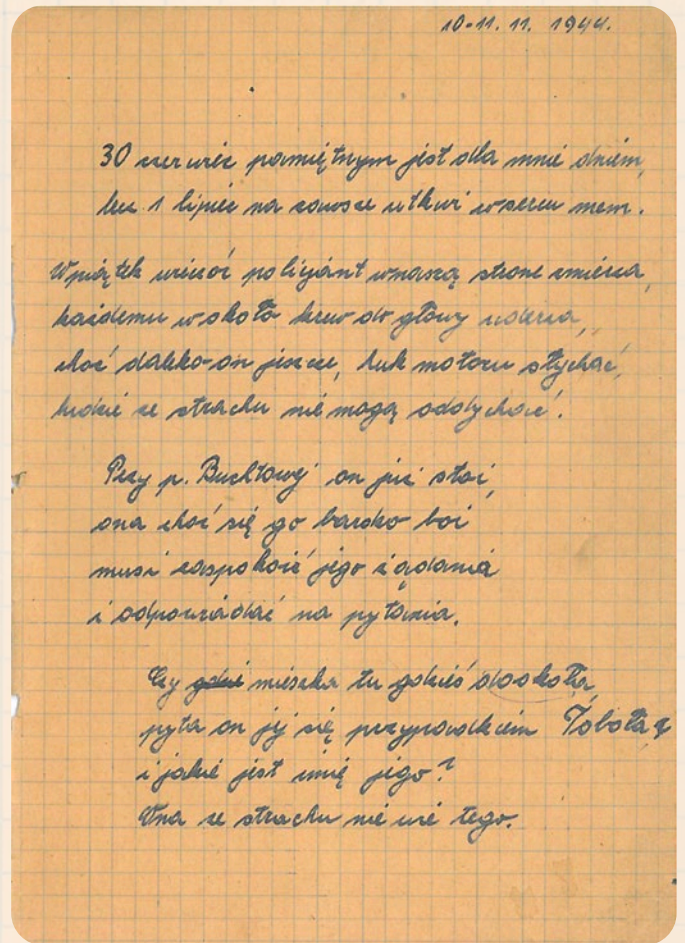 10-11. 11. 1944.
30 czerwiec pamiętnym jest dla mnie dniem,
lecz 1 lipiec na zawsze utkwi w sercu mem.
W piątek wieczór policjant w naszą strone zmierza,
każdemu w około krew do głowy uderza,
choć daleko on jeszcze, huk motoru słychać,
ludzie ze strachu nie mogą oddychać.
Przy p. Buchtowej on już stoi,
ona choć się go bardzo boi
musi zaspokoić jego żądania
i odpowiadać na pytania.
Czy gdzie mieszka tu gdzieś dookoła,
pyta on jej się przypadkiem Tobola?
i jakie jest imię jego?
Ona ze strachu nie wie tego.